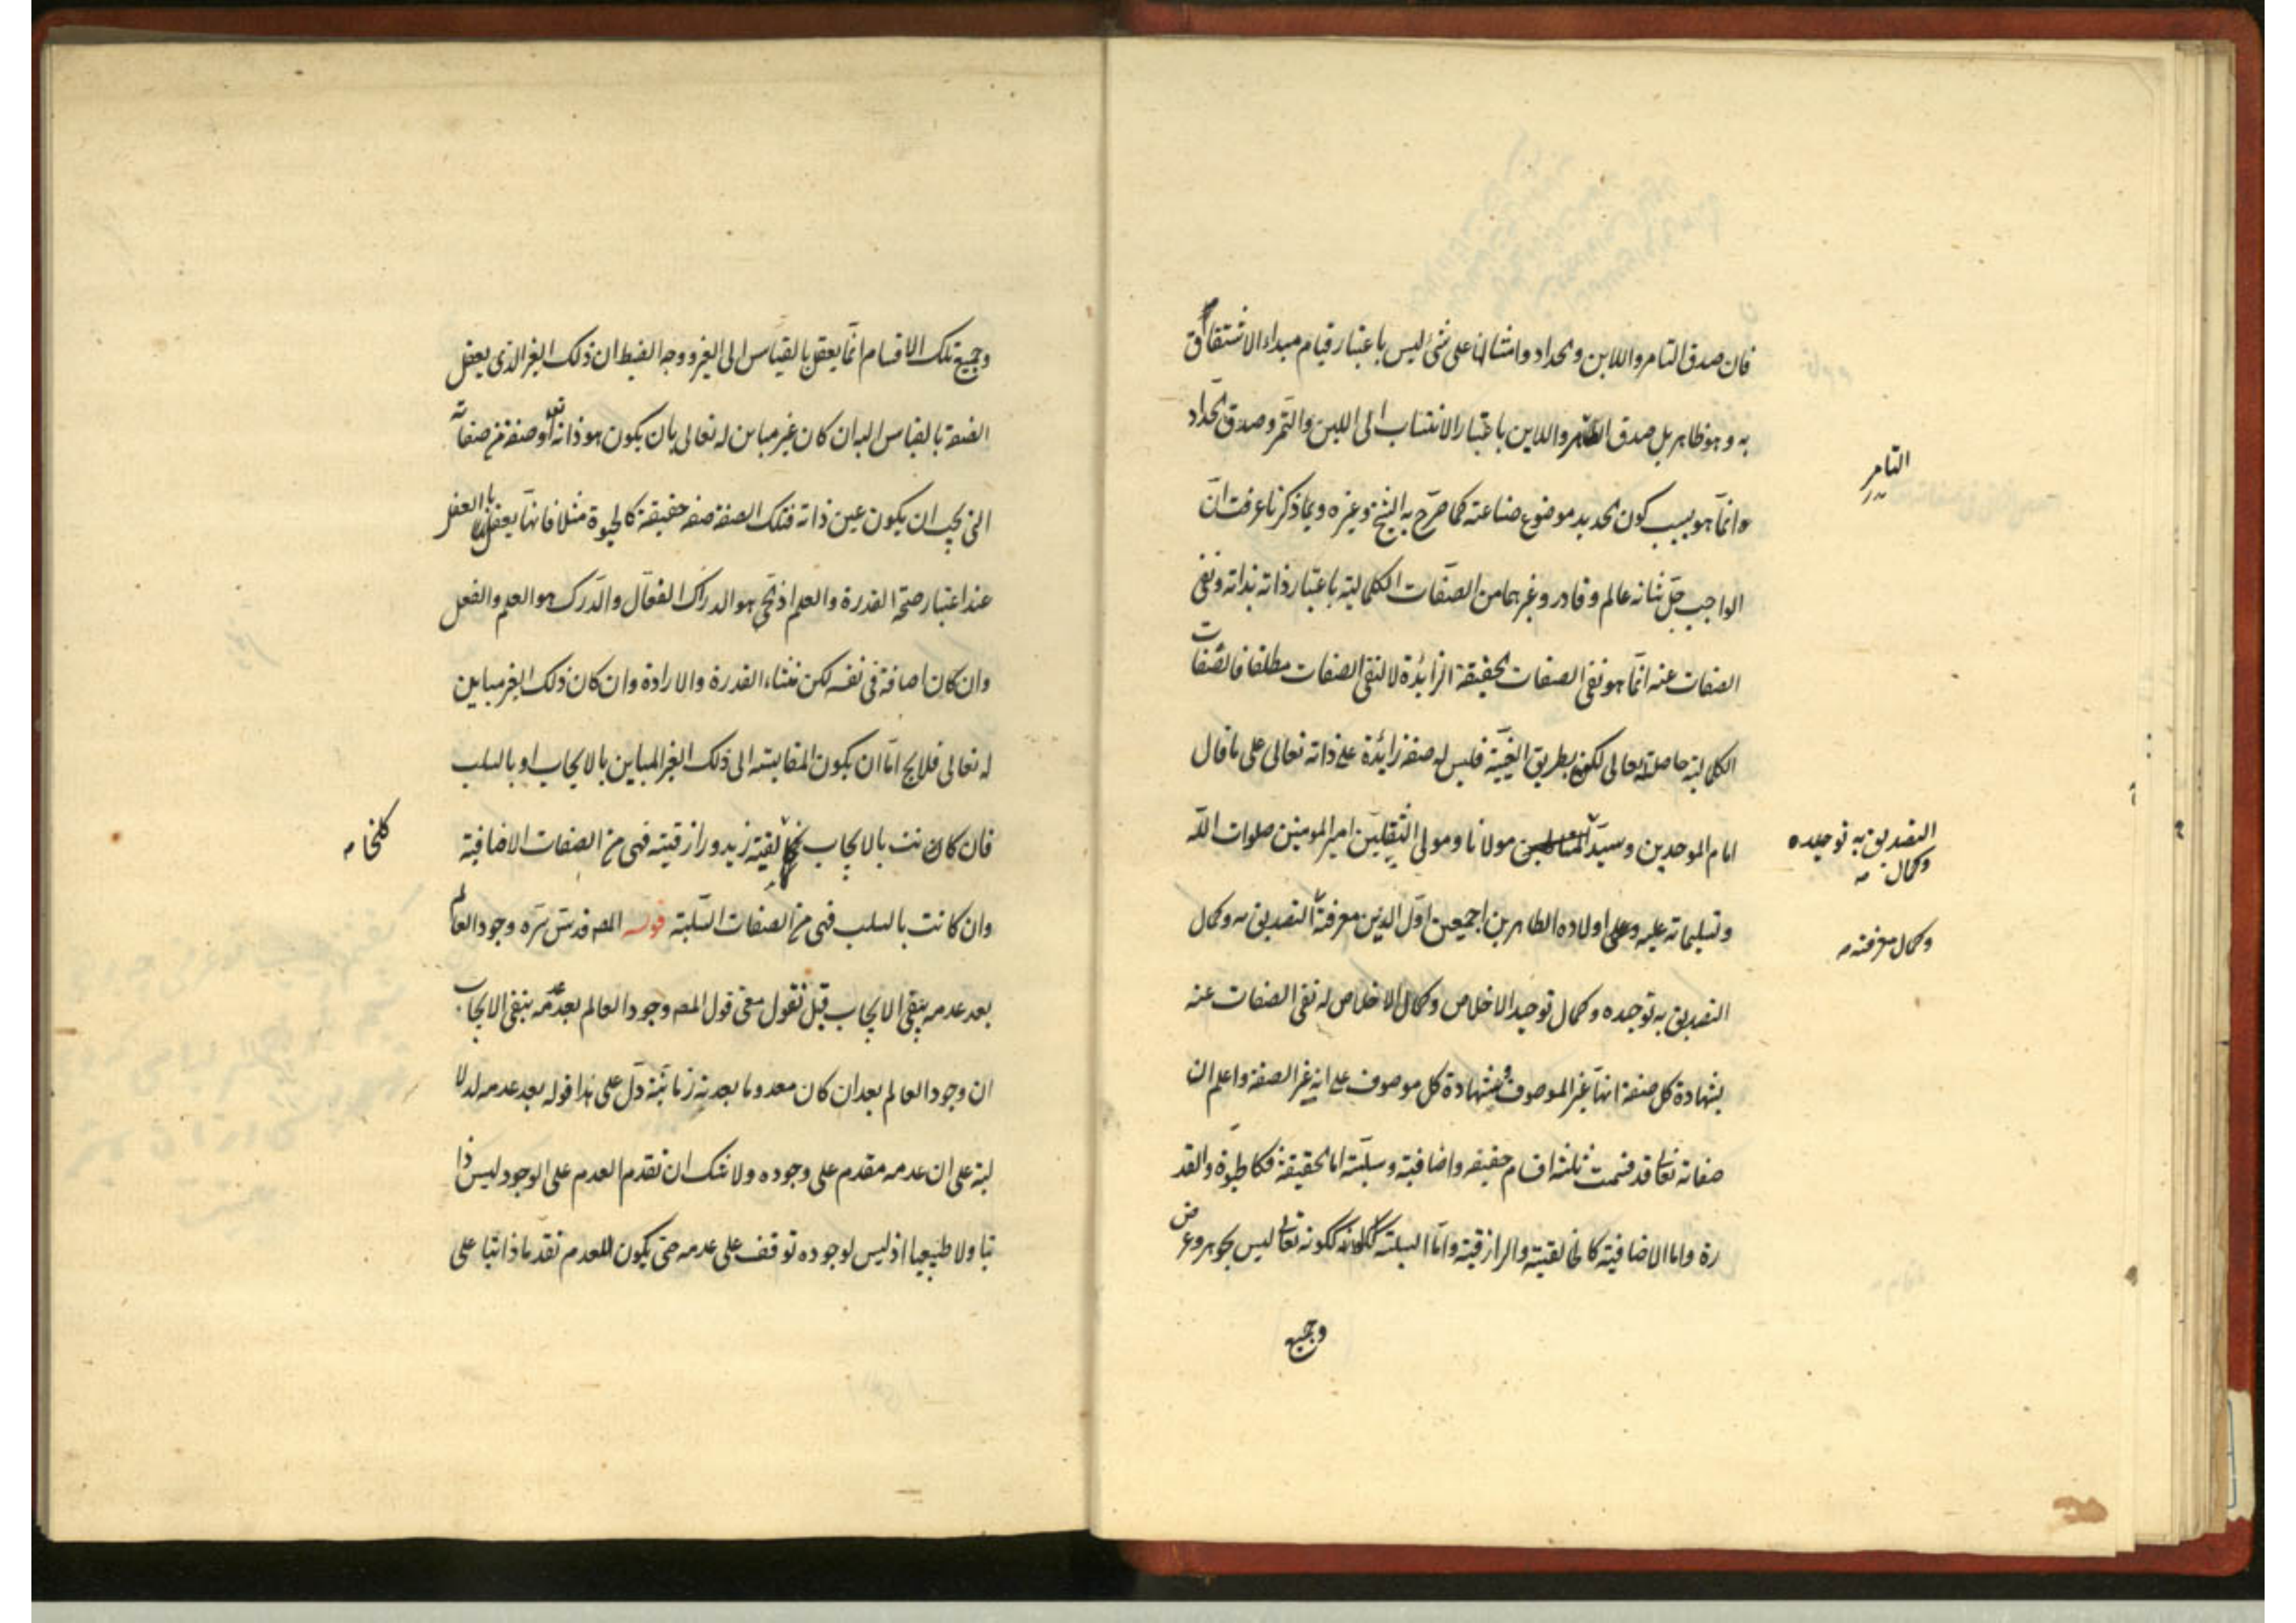 فان صدق التامر واللابن والحداد وامثالها على شئ ليس باعتبار قيام مبداء الاشتقاق
به وهو ظاهر بل صدق التامر واللابن باعتبار الانتساب الى اللبن والتمر وصدق الحداد
التامر
وانما هو بسبب كون الحديد موضوع صناعته كما صرح به الشيخ وغيره وبما ذكرنا عرفت ان
الواجب جل شانه عالم وقادر وغيرهما من الصفات الكمالية باعتبار ذاته بذاته ونفى
الصفات عنه انما هو نفى الصفات الحقيقة الزائدة لا لنفى الصفات مطلقا فالصفات
الكمالية حاصلة له تعالى لكن بطريق العينية فليس له صفة زائدة على ذاته تعالى على ما قال
امام الموحدين وسيد مولانا ومولى الثقلين امير المومنين صلوات الله
التصديق به توحيده
وكمال
وتسليماته عليه وعلى اولاده الطاهرين اجمعين اول الدين معرفته التصديق به وكمال
وكمال معرفته
التصديق به توحيده وكمال توحيد الاخلاص وكمال الاخلاص له نفى الصفات عنه
بشهادة كل صفة انها غير الموصوف وشهادة كل موصوف على انه غير الصفة واعلم ان
صفاته تعالى قد قسمت ثلثة اقسام حقيقه واضافية وسلبية اما الحقيقة فكالحيوة والقد
رة واما الاضافية كالخالقية والرازقية واما السلبية ككونه تعالى ليس بجوهر وعرض
وجميع
وجميع تلك الاقسام انما يعقل بالقياس الى الغير ووجه الضبط ان ذلك الغير الذى يعقل
الصفة بالقياس اليه ان كان غير مباين له تعالى بان يكون هو ذاته تعالى او صفة من صفاته
التى يجب ان يكون عين ذاته فتلك الصفة صفه حقيقة كالحيوة مثلا فانها يعقل بالعقل
عند اعتبار صحة القدرة والعلم اذ الحى هو الدراك الفعال والدرك هو العلم والفعل
وان كان اضافة فى نفسه لكن منشاءه القدرة والارادة وان كان ذلك الغير مباين
له تعالى فلا يخ اما ان يكون المقايسه الى ذلك الغير المباين بالايجاب او بالسلب
فان كانت بالايجاب كخالقية زيد ورازقيته فهى من الصفات الاضافية
كلخا
وان كانت بالسلب فهى من الصفات السلبية قوله المص قدس سره وجود العالم
بعد عدمه ينفى الايجاب قبل نقول معنى قول المص وجود العالم بعد عدمه ينفى الايجاب
ان وجود العالم بعد ان كان معدوما بعدية زمانية دل على هذا قوله بعد عدمه لدلا
لته على ان عدمه مقدم على وجوده ولا شك ان تقدم العدم على الوجود ليس ذا
تيا ولا طبيعيا اذ ليس لوجوده توقف على عدمه حتى يكون للعدم تقدما ذاتيا على